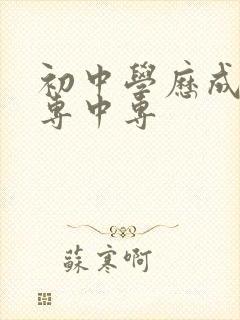 初中學歷成
專中專
蘇寒啊